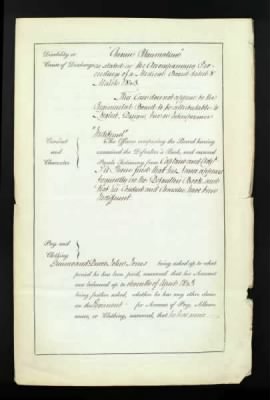 Disability or "Chronic Rheumatism"
Cause of Discharge as stated in the Accompanying Pro-
ceedings of a Medical Board dated 8
March 1843.
This Case does not appear to the
Regimental Board to be attributable to
Neglect, Design, Vice or Intemperance
"Indifferent"
Conduct The Officers composing the Board having
and examined the Defaulter's Book, and received
Character Parole Testimony from Captain and Adjt
find that his name appears
frequently in the Defaulters Book and
that his Conduct and Character have been
Indifferent
Pay and
Clothing
Drummer and Private John Jones being asked up to what
period he has been paid, answered that his Account
was balanced up to 1843
being further asked, whether he has any other claim
on the Regiment for Arrears of Pay, Allow-
ance, or Clothing, answered, that he has none